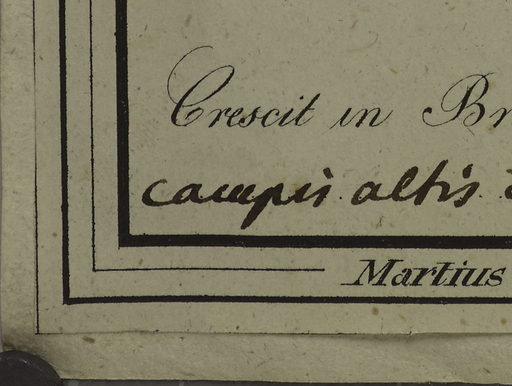 Crescit in Br
campis altis
Martius